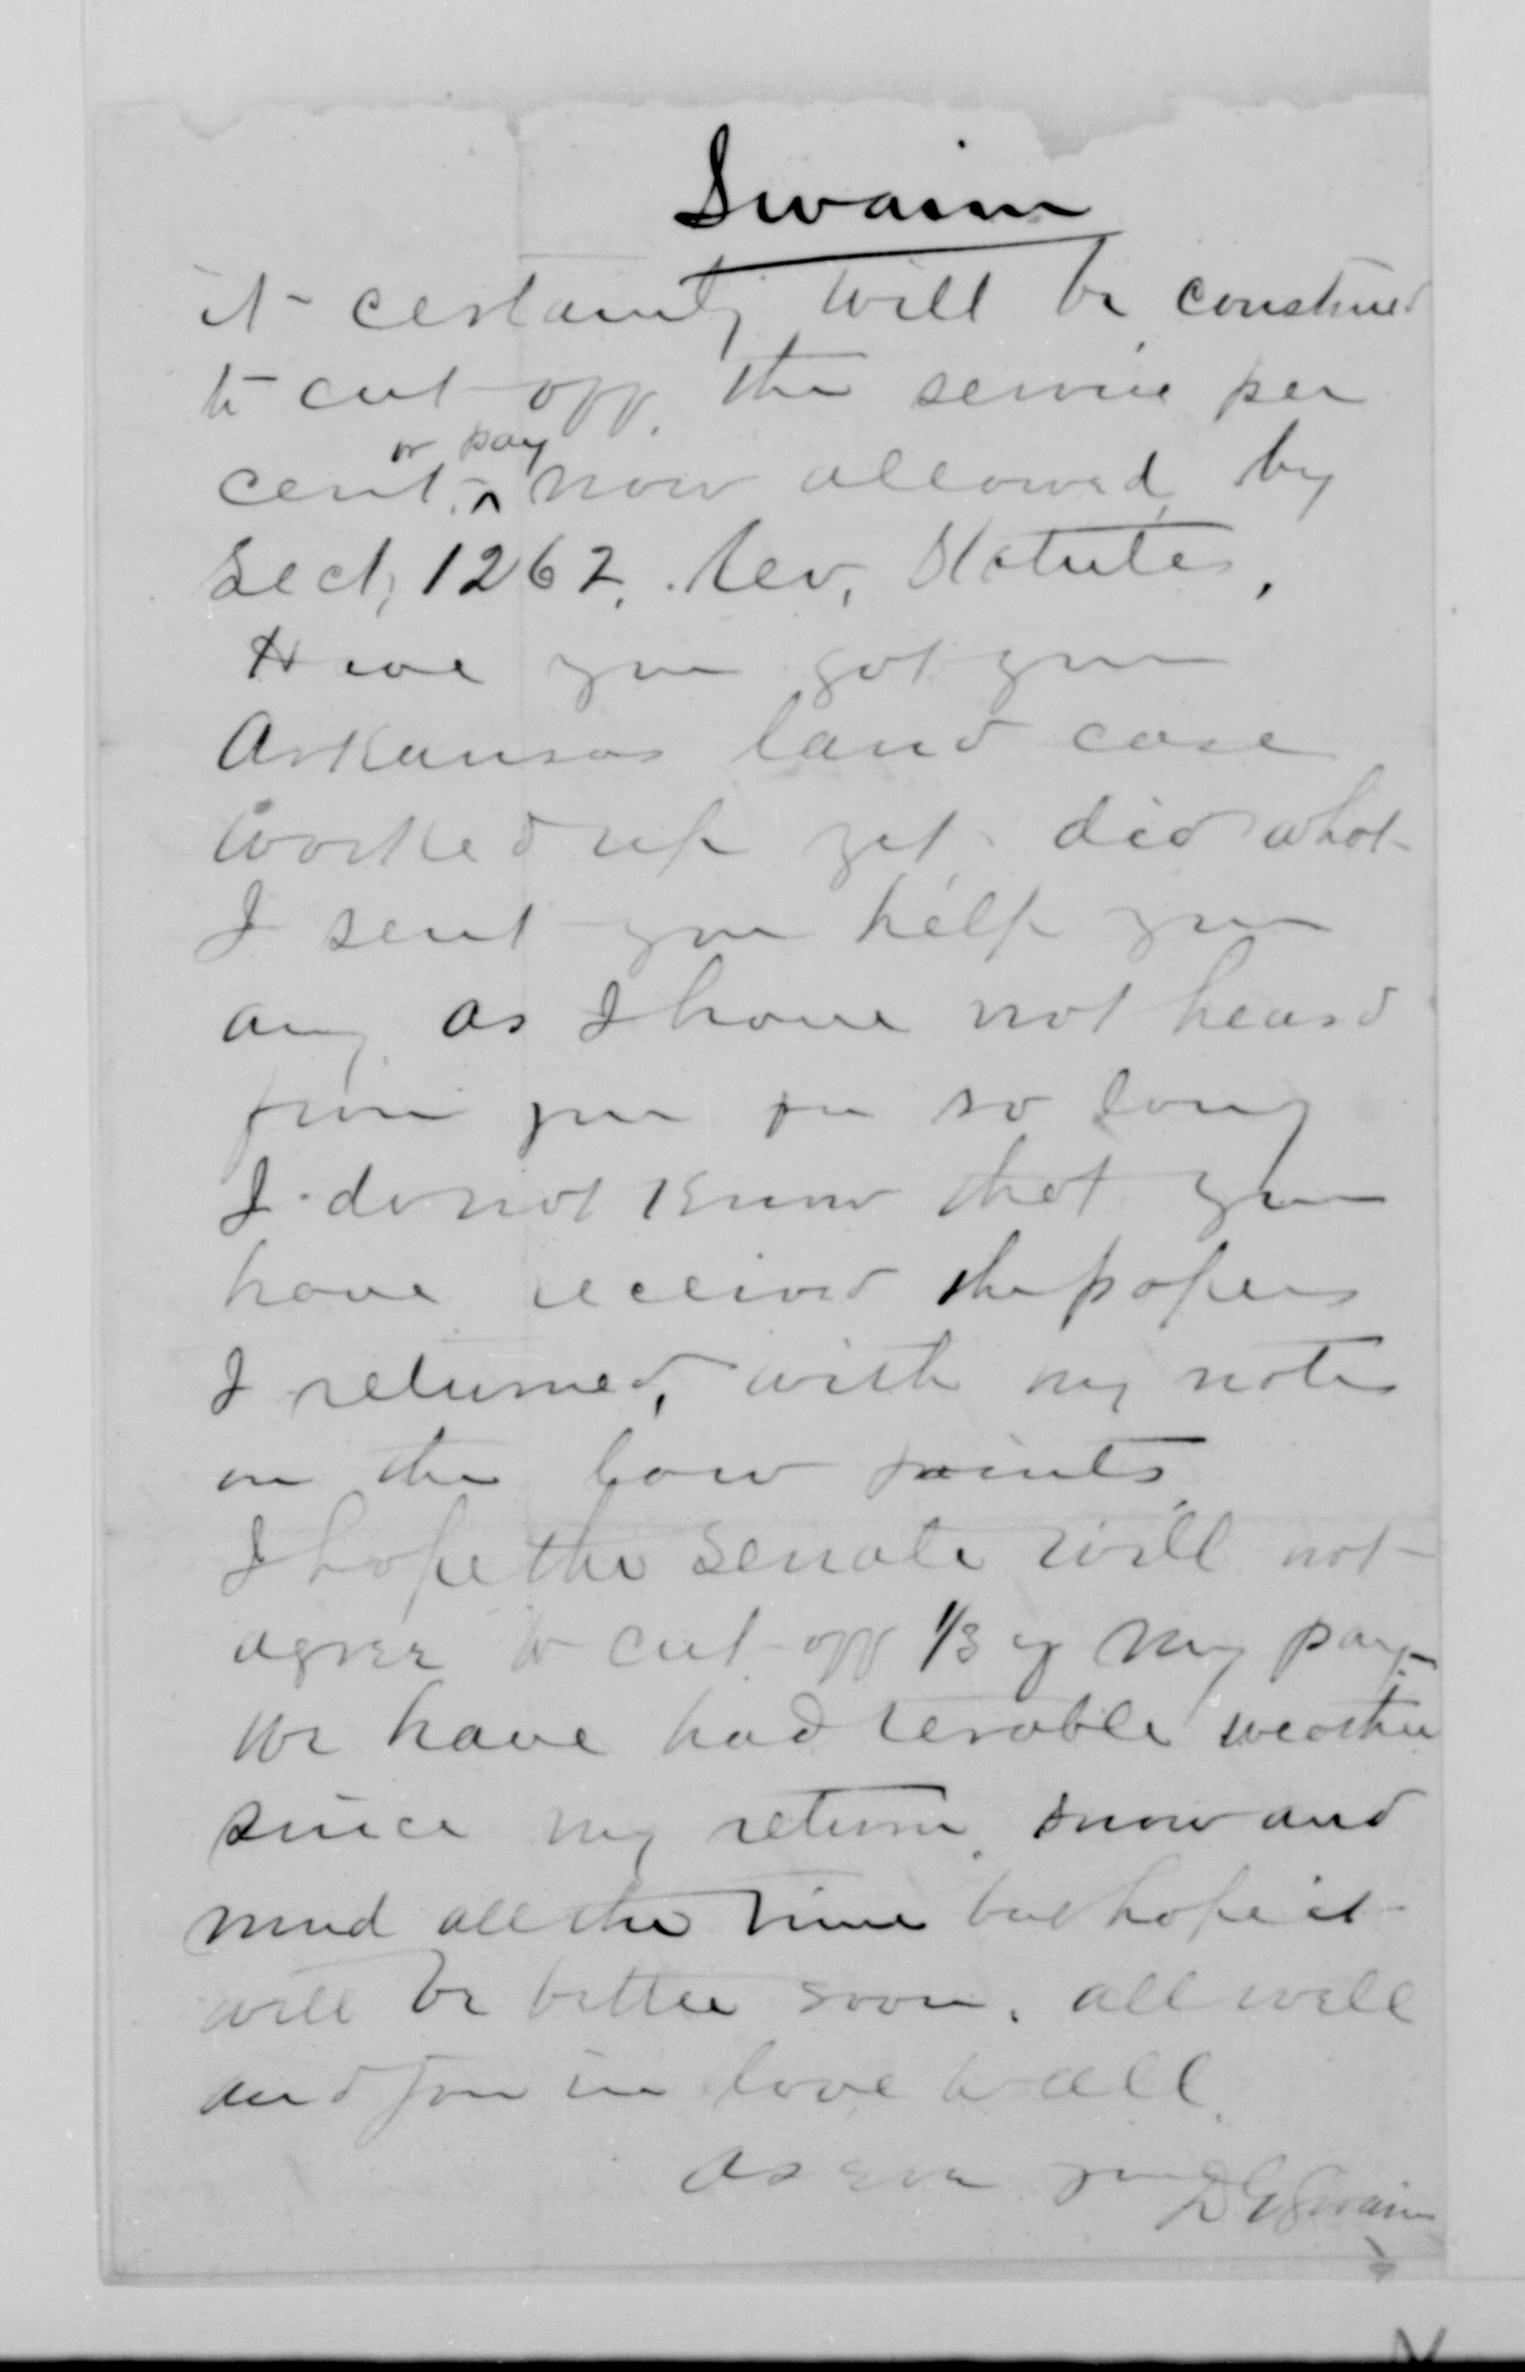 Swaim
it certainly will be construed
to cut off the service per
or pay
cent. ^ now allowed by
Sect, 1262, Rev, Statutes,
Have you got your
Arkansas land case
worked up yet. did what
I sent you help you
any as I have not heard
from you for so long
I do not know that you
have received the papers
I returned, with my notes
on the law points.
I hope the Senate will not
agree to cut off 1/3 of my pay-
We have had terable weather
since my return. snow and
mud all the time but hope it
will be better soon. all well
and join in love to all.
As ever yours
D G Swaim